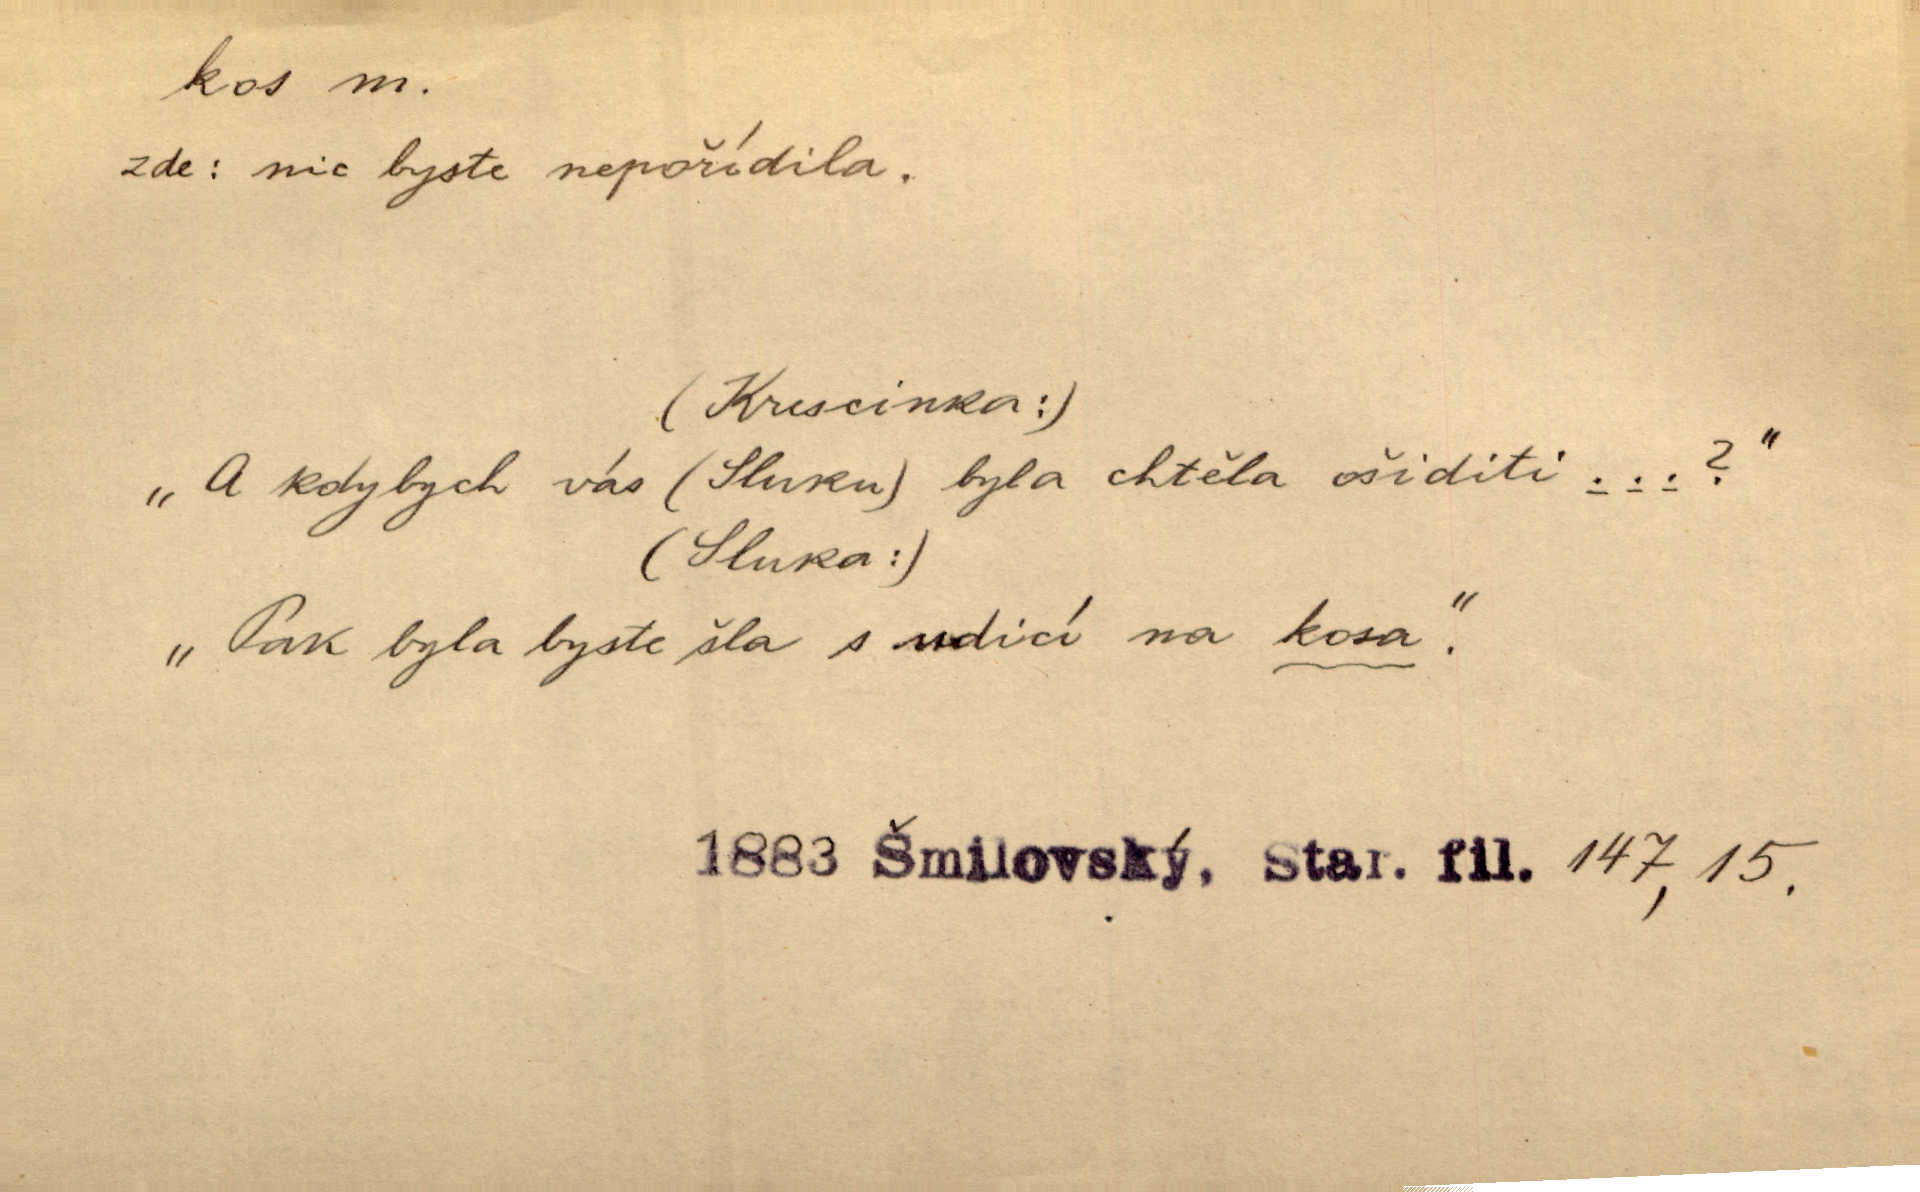 kos m.
zde: nic byste nepořídila.
(Krescinka:)
„A kdybych vás (Sluku) byla chtěla ošiditi . . . ?"
(Sluka:)
„Pak byla byste šla s udicí na kosa".
1883 Šmilovský, Star. fil. 147, 15.